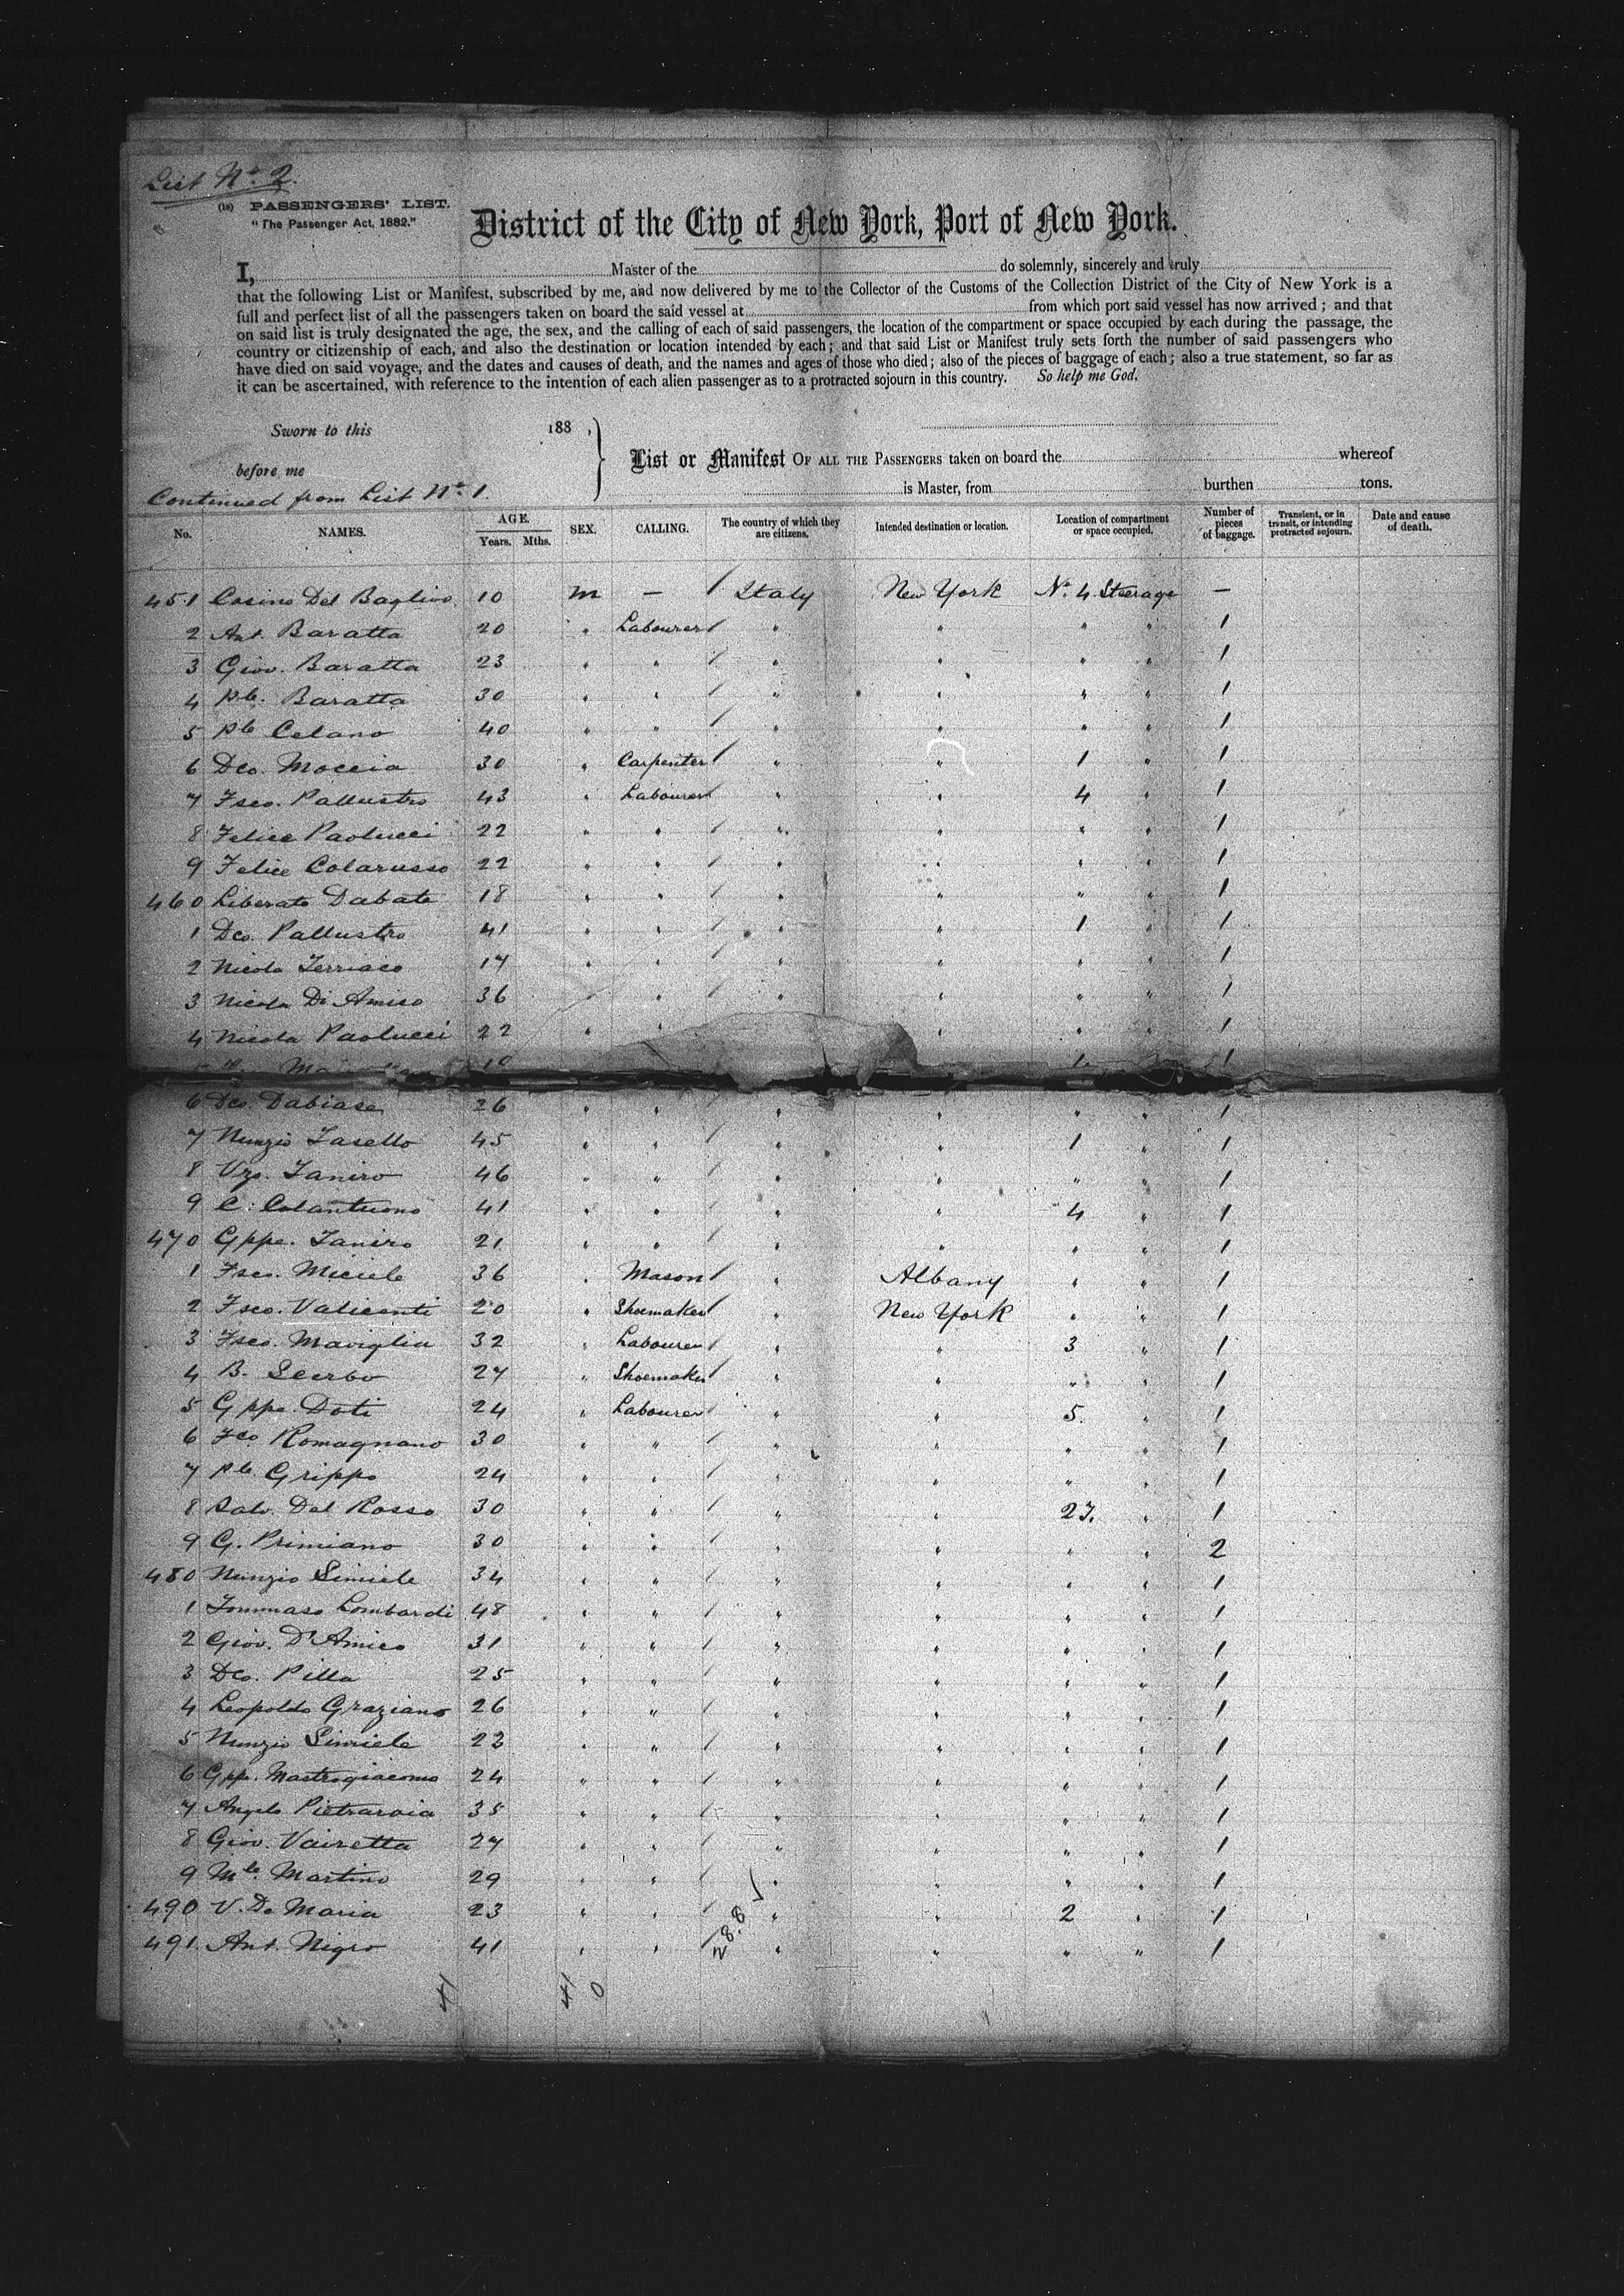 List No. 2.
(18) PASSENGERS' LIST.
"The Passenger Act, 1882."
District of the City of New York, Port of New York.
I, Master of the do solemnly, sincerely and truly
that the following List or Manifest, subscribed by me, and now delivered by me to the Collector of the Customs of the Collection District of the City of New York is a
full and perfect list of all the passengers taken on board the said vessel at from which port said vessel has now arrived; and that
on said list is truly designated the age, the sex, and the calling of each of said passengers, the location of the compartment or space occupied by each during the passage, the
country or citizenship of each, and also the destination or location intended by each; and that said List or Manifest truly sets forth the number of said passengers who
have died on said voyage, and the dates and causes of death, and the names and ages of those who died; also of the pieces of baggage of each; also a true statement, so far as
it can be ascertained, with reference to the intention of each alien passenger as to a protracted sojourn in this country. So help me God.
Sworn to this 188 ,
before me
List or Manifest OF ALL THE PASSENGERS taken on board the whereof
is Master, from burthen tons.
Continued from List No. 1.
No. NAMES. AGE. Years. Mths. SEX. CALLING. The country of which they are citizens. Intended destination or location. Location of compartment or space occupied. Number of pieces of baggage. Transient, or in transit, or intending protracted sojourn. Date and cause of death.
451 Cosino Del Baglivo 10 m — / Italy New York No. 4 Steerage —
2 Ant. Baratta 20 " Labourer / " " " " 1
3 Giov. Baratta 23 " " / " " " " 1
4 Ple. Baratta 30 " " / " " " " 1
5 Ple Celano 40 " " / " " " " 1
6 Dco. Moccia 30 " Carpenter / " " 1 " 1
7 Fsco. Pallustro 43 " Labourer / " " 4 " 1
8 Felice Paolucci 22 " " / " " " " 1
9 Felice Colarusso 22 " " / " " " " 1
460 Liberato Dabate 18 " " / " " " " 1
1 Dco. Pallustro 41 " " / " " 1 " 1
2 Nicola Terriaco 17 " " / " " " " 1
3 Nicola Di Amico 36 " / " " " " 1
4 Nicola Paolucci 22 " " " " " 1
1
6 Dco. Dabiase 26 " " / " " " " 1
7 Nunzio Iasello 45 " " / " " 1 " 1
8 Vzo. Ianiro 46 " " / " " " " 1
9 C. Colantuono 41 " " / " " 4 " 1
470 Gppe. Ianiro 21 " " / " " " " 1
1 Fsco. Miciele 36 " Mason / " Albany " " 1
2 Fsco. Valicenti 20 " Shoemaker / " New York " " 1
3 Fsco. Maviglia 32 " Labourer / " " 3 " 1
4 B. Scerbo 27 " Shoemaker / " " " " 1
5 Gppe. Doti 24 " Labourer / " " 5. " 1
6 Fco Romagnano 30 " " / " " " " 1
7 Ple. Grippo 24 " " / " " " " 1
8 Salv. Del Rosso 30 " " / " " 27. " 1
9 G. Primiano 30 " " / " " " " 2
480 Nunzio Simiele 34 " " / " " " " 1
1 Tommaso Lombardi 48 " " / " " " " 1
2 Giov. D'Amico 31 " " / " " " " 1
3 Dco. Pilla 25 " " / " " " " 1
4 Leopoldo Graziano 26 " " / " " " " 1
5 Nunzio Simiele 23 " " / " " " " 1
6 Gpp. Mastrogiacomo 24 " " / " " " " 1
7 Angelo Pietraroia 35 " " / " " " " 1
8 Giov. Vairetta 27 " " / " " " " 1
9 Mle. Martino 29 " " / " " " " 1
490 V. De Maria 23 " " / " " 2 " 1
491. Ant. Nigro 41 " " / " " " " 1
28.8 ✓
41 41 0